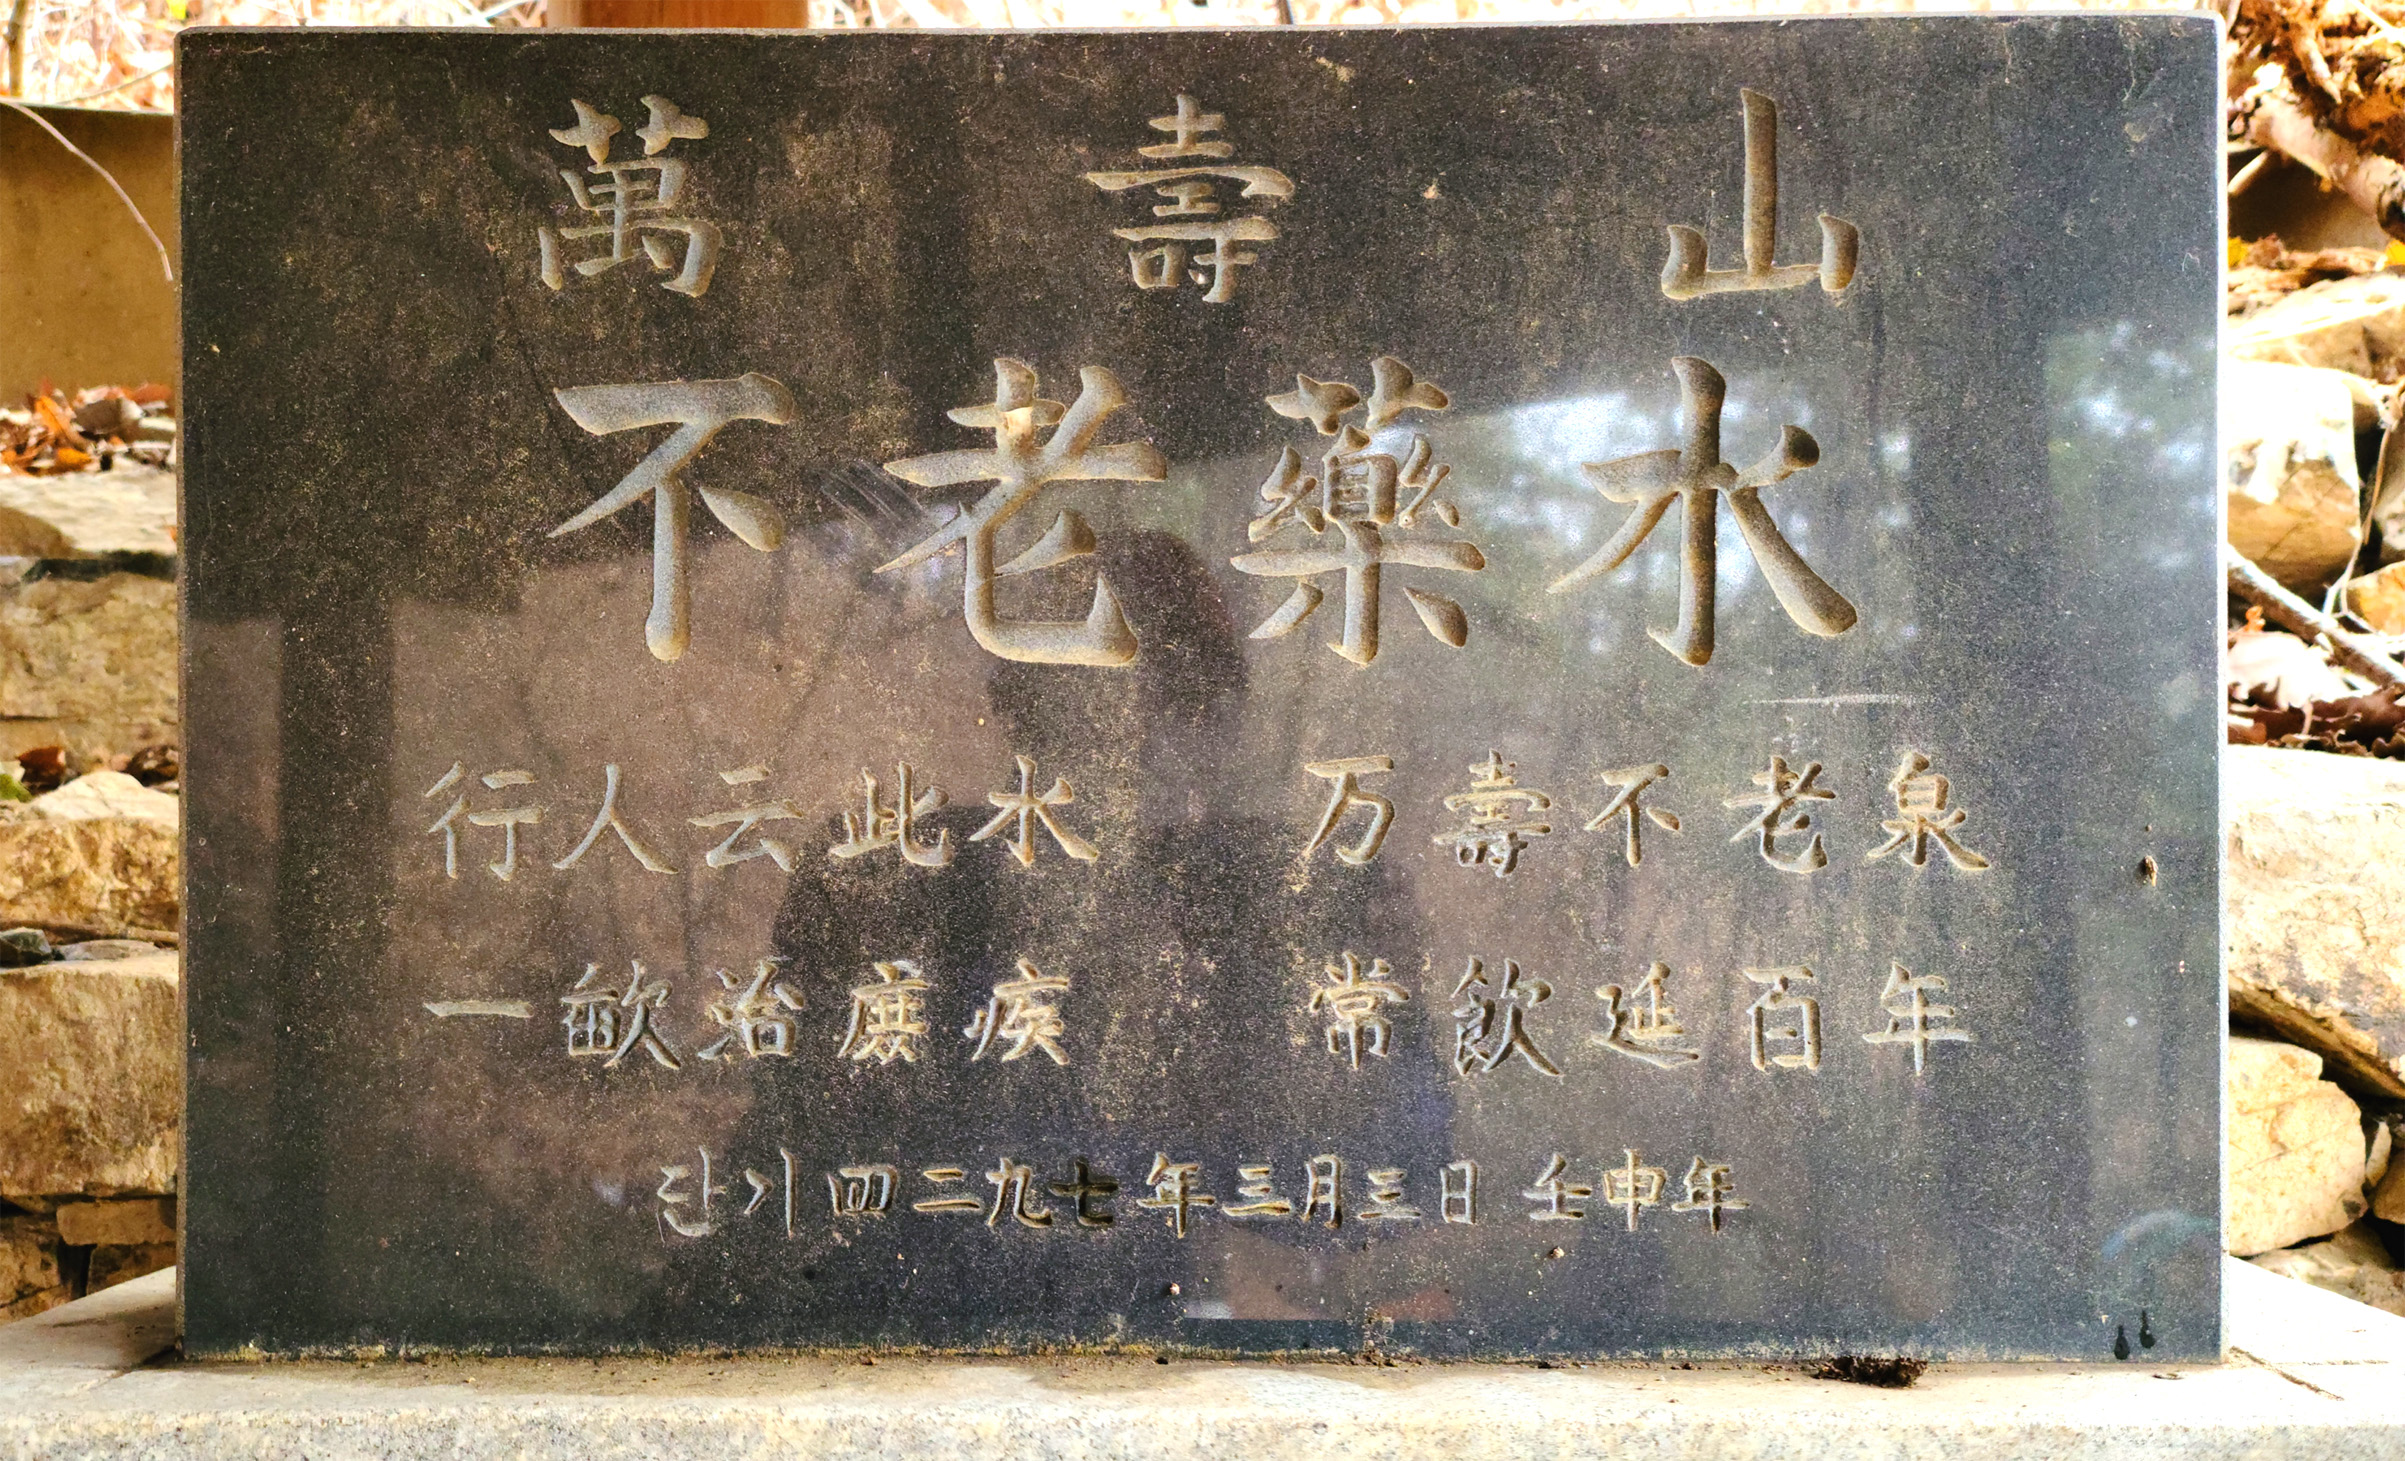 萬壽山
不老藥水
行人云此水 万壽不老泉
一歃治庶疾 常飮延百年
단기 四二九七年三月三日 壬申年